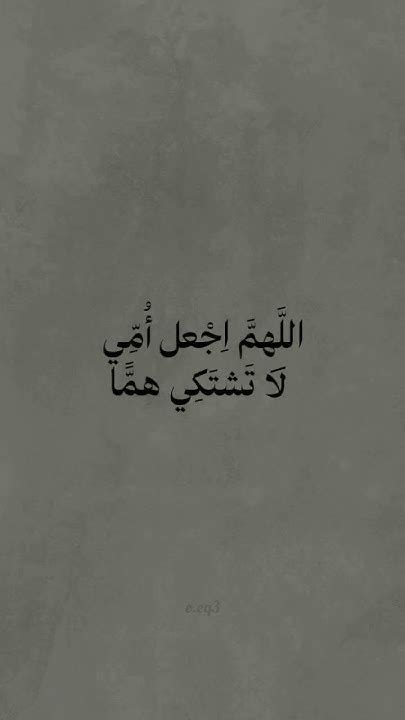 اللَّهمَّ اِجْعل أُمِّي
لَا تَشتَكِي همًّا
o.eq3